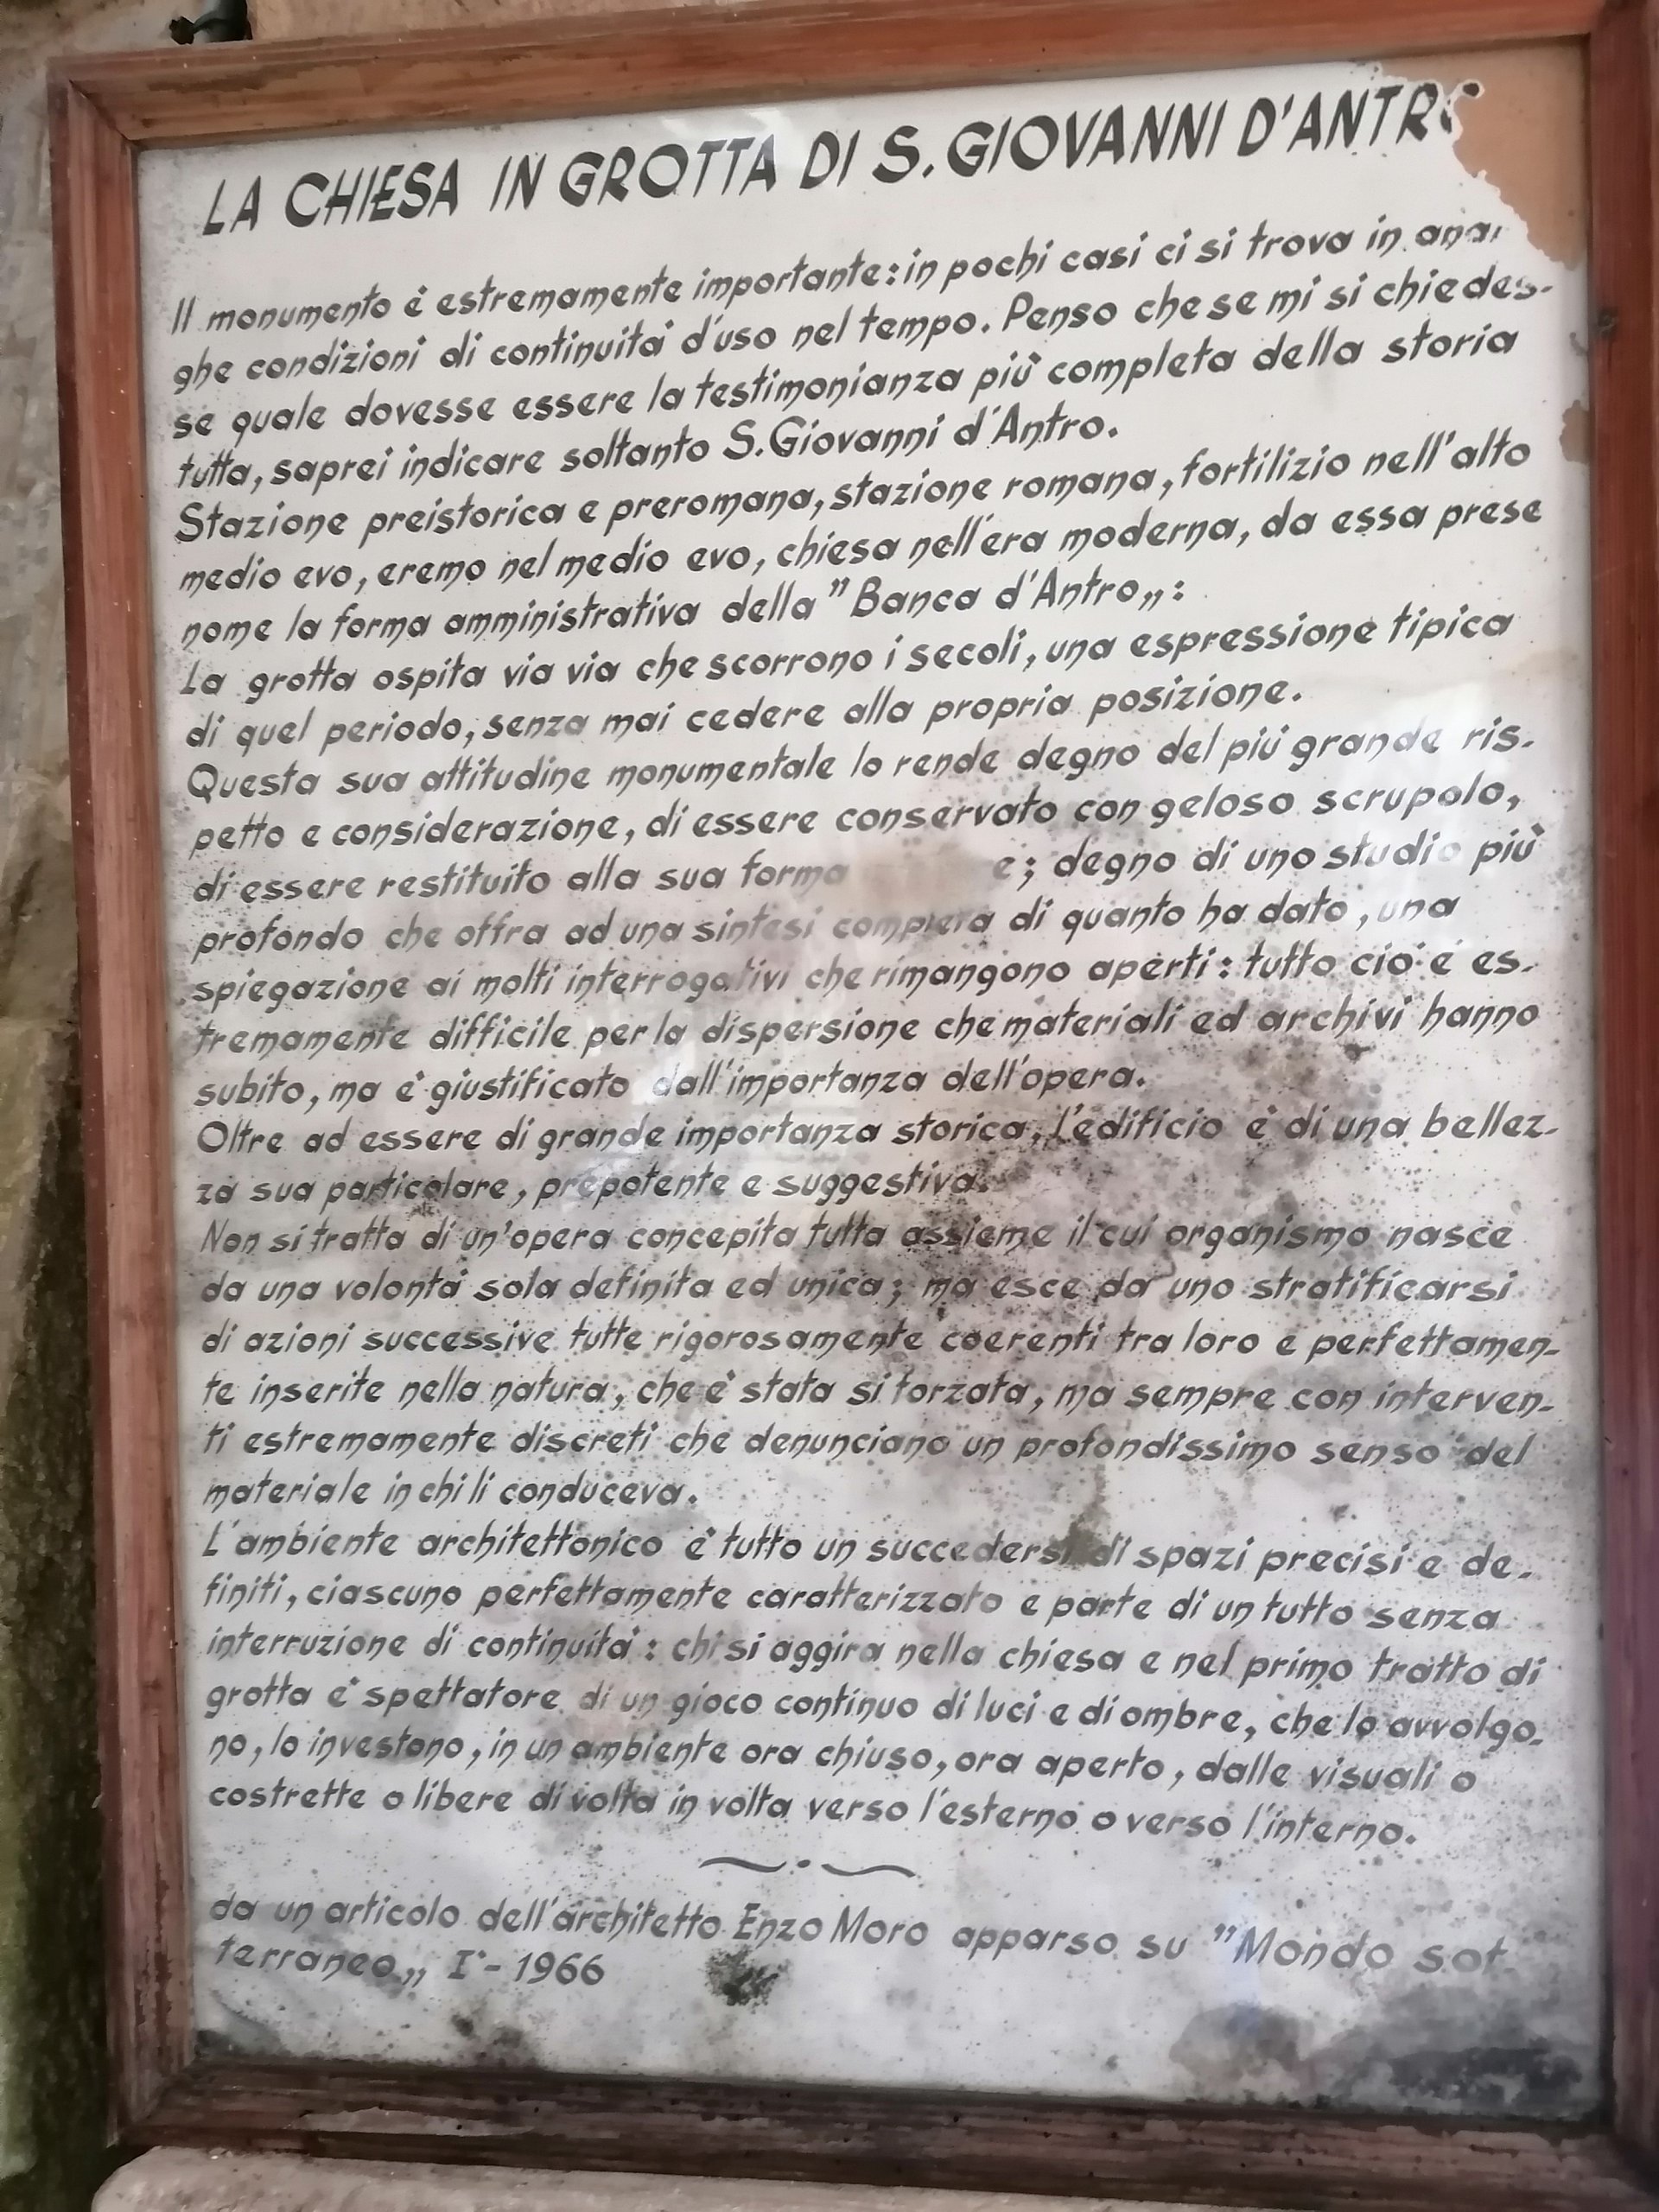 LA CHIESA IN GROTTA DI S. GIOVANNI D'ANTRO
Il monumento è estremamente importante: in pochi casi ci si trova in
ghe condizioni di continuità d'uso nel tempo. Penso che se mi si chiedes-
se quale dovesse essere la testimonianza più completa della storia
tutta, saprei indicare soltanto S. Giovanni d'Antro.
Stazione preistorica e preromana, stazione romana, fortilizio nell'alto
medio evo, eremo nel medio evo, chiesa nell'era moderna, da essa prese
nome la forma amministrativa della "Banca d'Antro„:
La grotta ospita via via che scorrono i secoli, una espressione tipica
di quel periodo, senza mai cedere alla propria posizione.
Questa sua attitudine monumentale lo rende degno del più grande ris-
petto e considerazione, di essere conservato con geloso scrupolo,
di essere restituito alla sua forma e; degno di uno studio più
profondo che offra ad una sintesi completa di quanto ha dato, una
spiegazione ai molti interrogativi che rimangono aperti: tutto ciò è es-
tremamente difficile per la dispersione che materiali ed archivi hanno
subito, ma è giustificato dall'importanza dell'opera.
Oltre ad essere di grande importanza storica, l'edificio è di una bellez-
za sua particolare, prepotente e suggestiva.
Non si tratta di un'opera concepita tutta assieme il cui organismo nasce
da una volontà sola definita ed unica; ma esce da uno stratificarsi
di azioni successive tutte rigorosamente coerenti tra loro e perfettamen-
te inserite nella natura, che è stata sì forzata, ma sempre con interven-
ti estremamente discreti che denunciano un profondissimo senso del
materiale in chi li conduceva.
L'ambiente architettonico è tutto un succedersi di spazi precisi e de-
finiti, ciascuno perfettamente caratterizzato e parte di un tutto senza
interruzione di continuità: chi si aggira nella chiesa e nel primo tratto di
grotta è spettatore di un gioco continuo di luci e di ombre, che lo avvolgo-
no, lo investono, in un ambiente ora chiuso, ora aperto, dalle visuali o
costrette o libere di volta in volta verso l'esterno o verso l'interno.
da un articolo dell'architetto Enzo Moro apparso su "Mondo sot-
terraneo„ I°- 1966